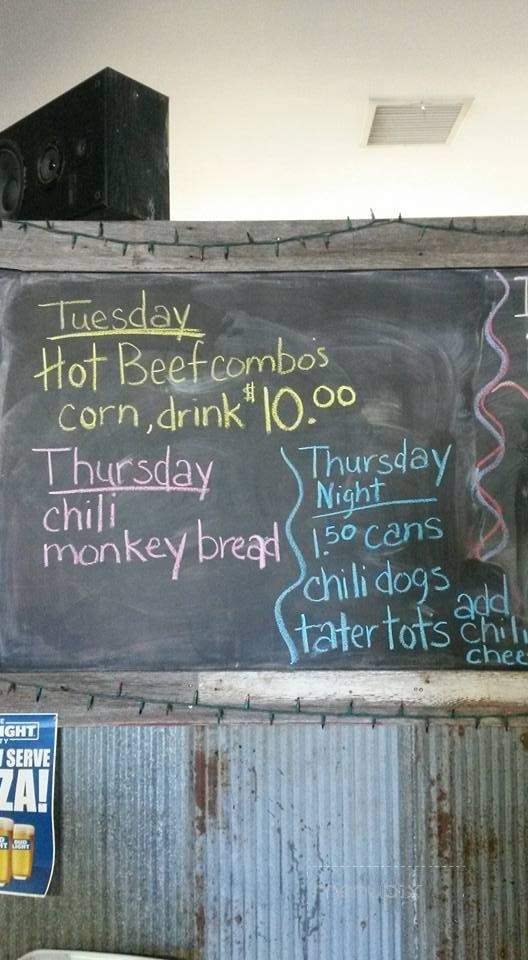 Tuesday
Hot Beef combo's
corn, drink $10.00
Thursday
chili
monkey bread
Thursday
Night
1.50 cans
chili dogs
tater tots add
chili
chee
IGHT
SERVE
ZA!
BUD
LIGHT